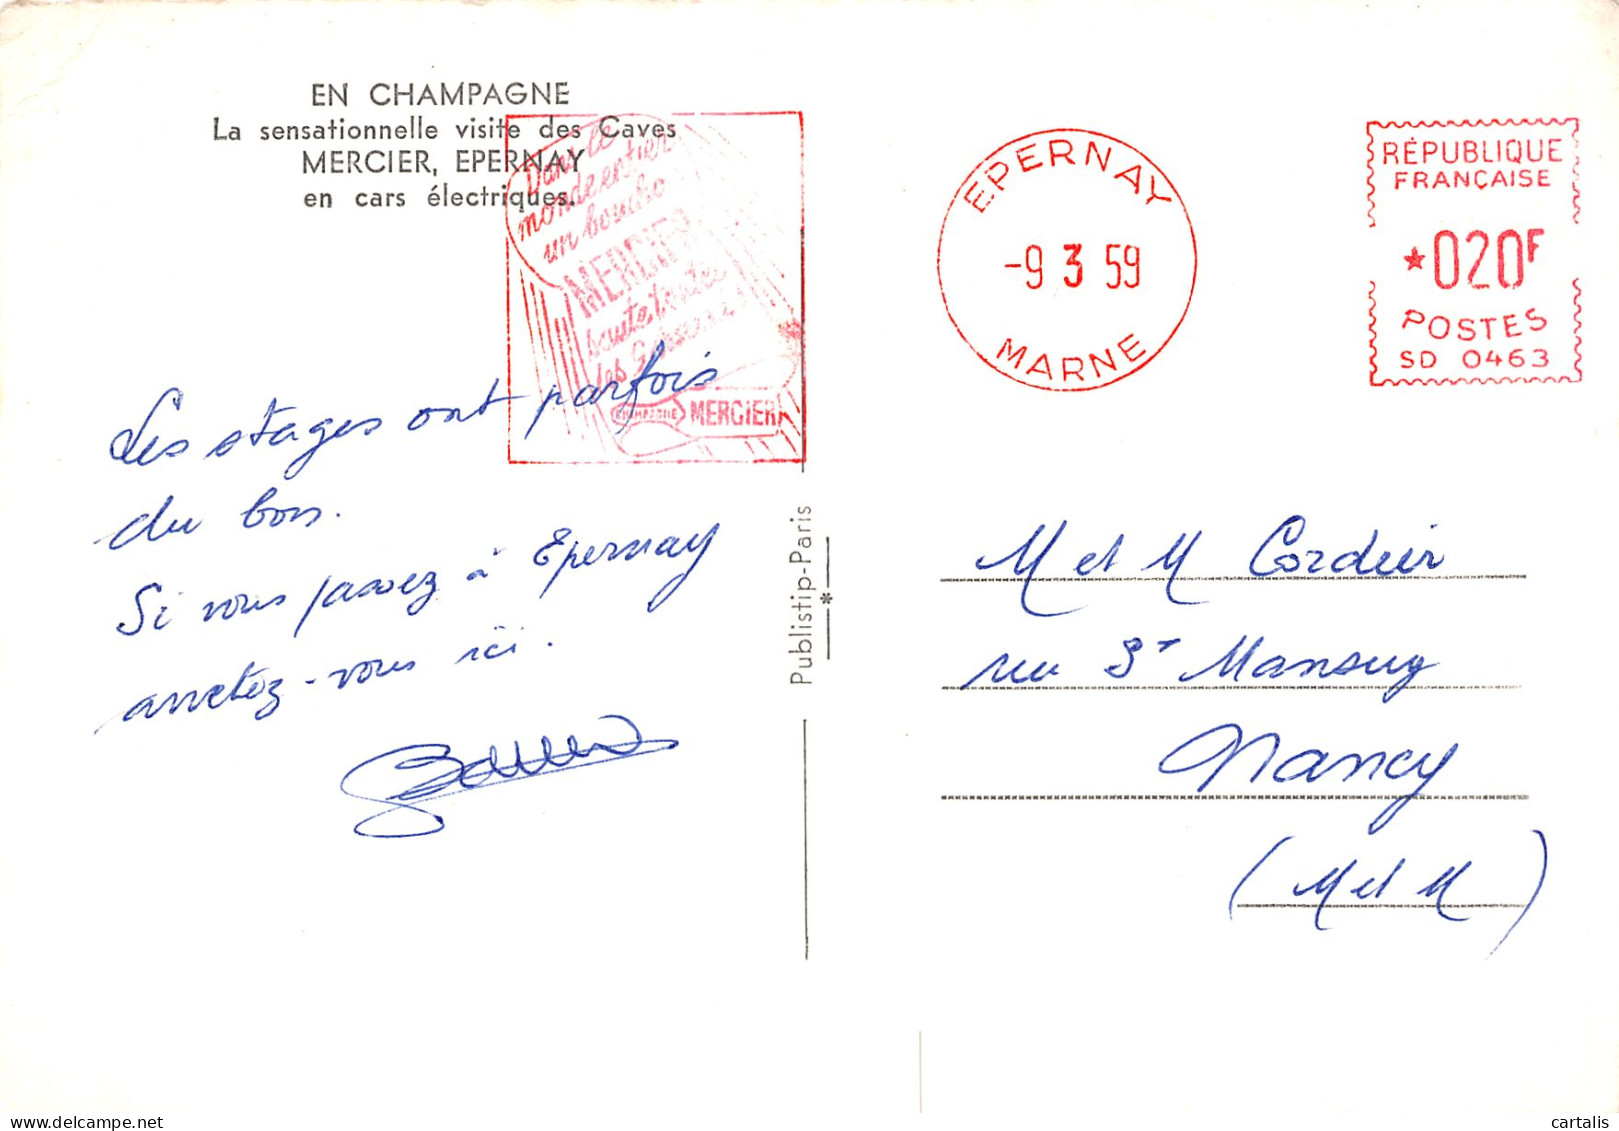 EN CHAMPAGNE
La sensationnelle visite des Caves
MERCIER, EPERNAY
en cars électriques.
Dans le
monde entier
un boucho
MERCIER
saute toutes
les secondes
CHAMPAGNE MERCIER
EPERNAY
-9 3 59
MARNE
RÉPUBLIQUE
FRANÇAISE
*020F
POSTES
SD 0463
Les stages ont parfois
du bon.
Si vous passez à Epernay
arretez-vous ici.
Publistip-Paris
M et M Cordier
rue St Mansuy
Nancy
(M et M)
cartalis
www.delcampe.net